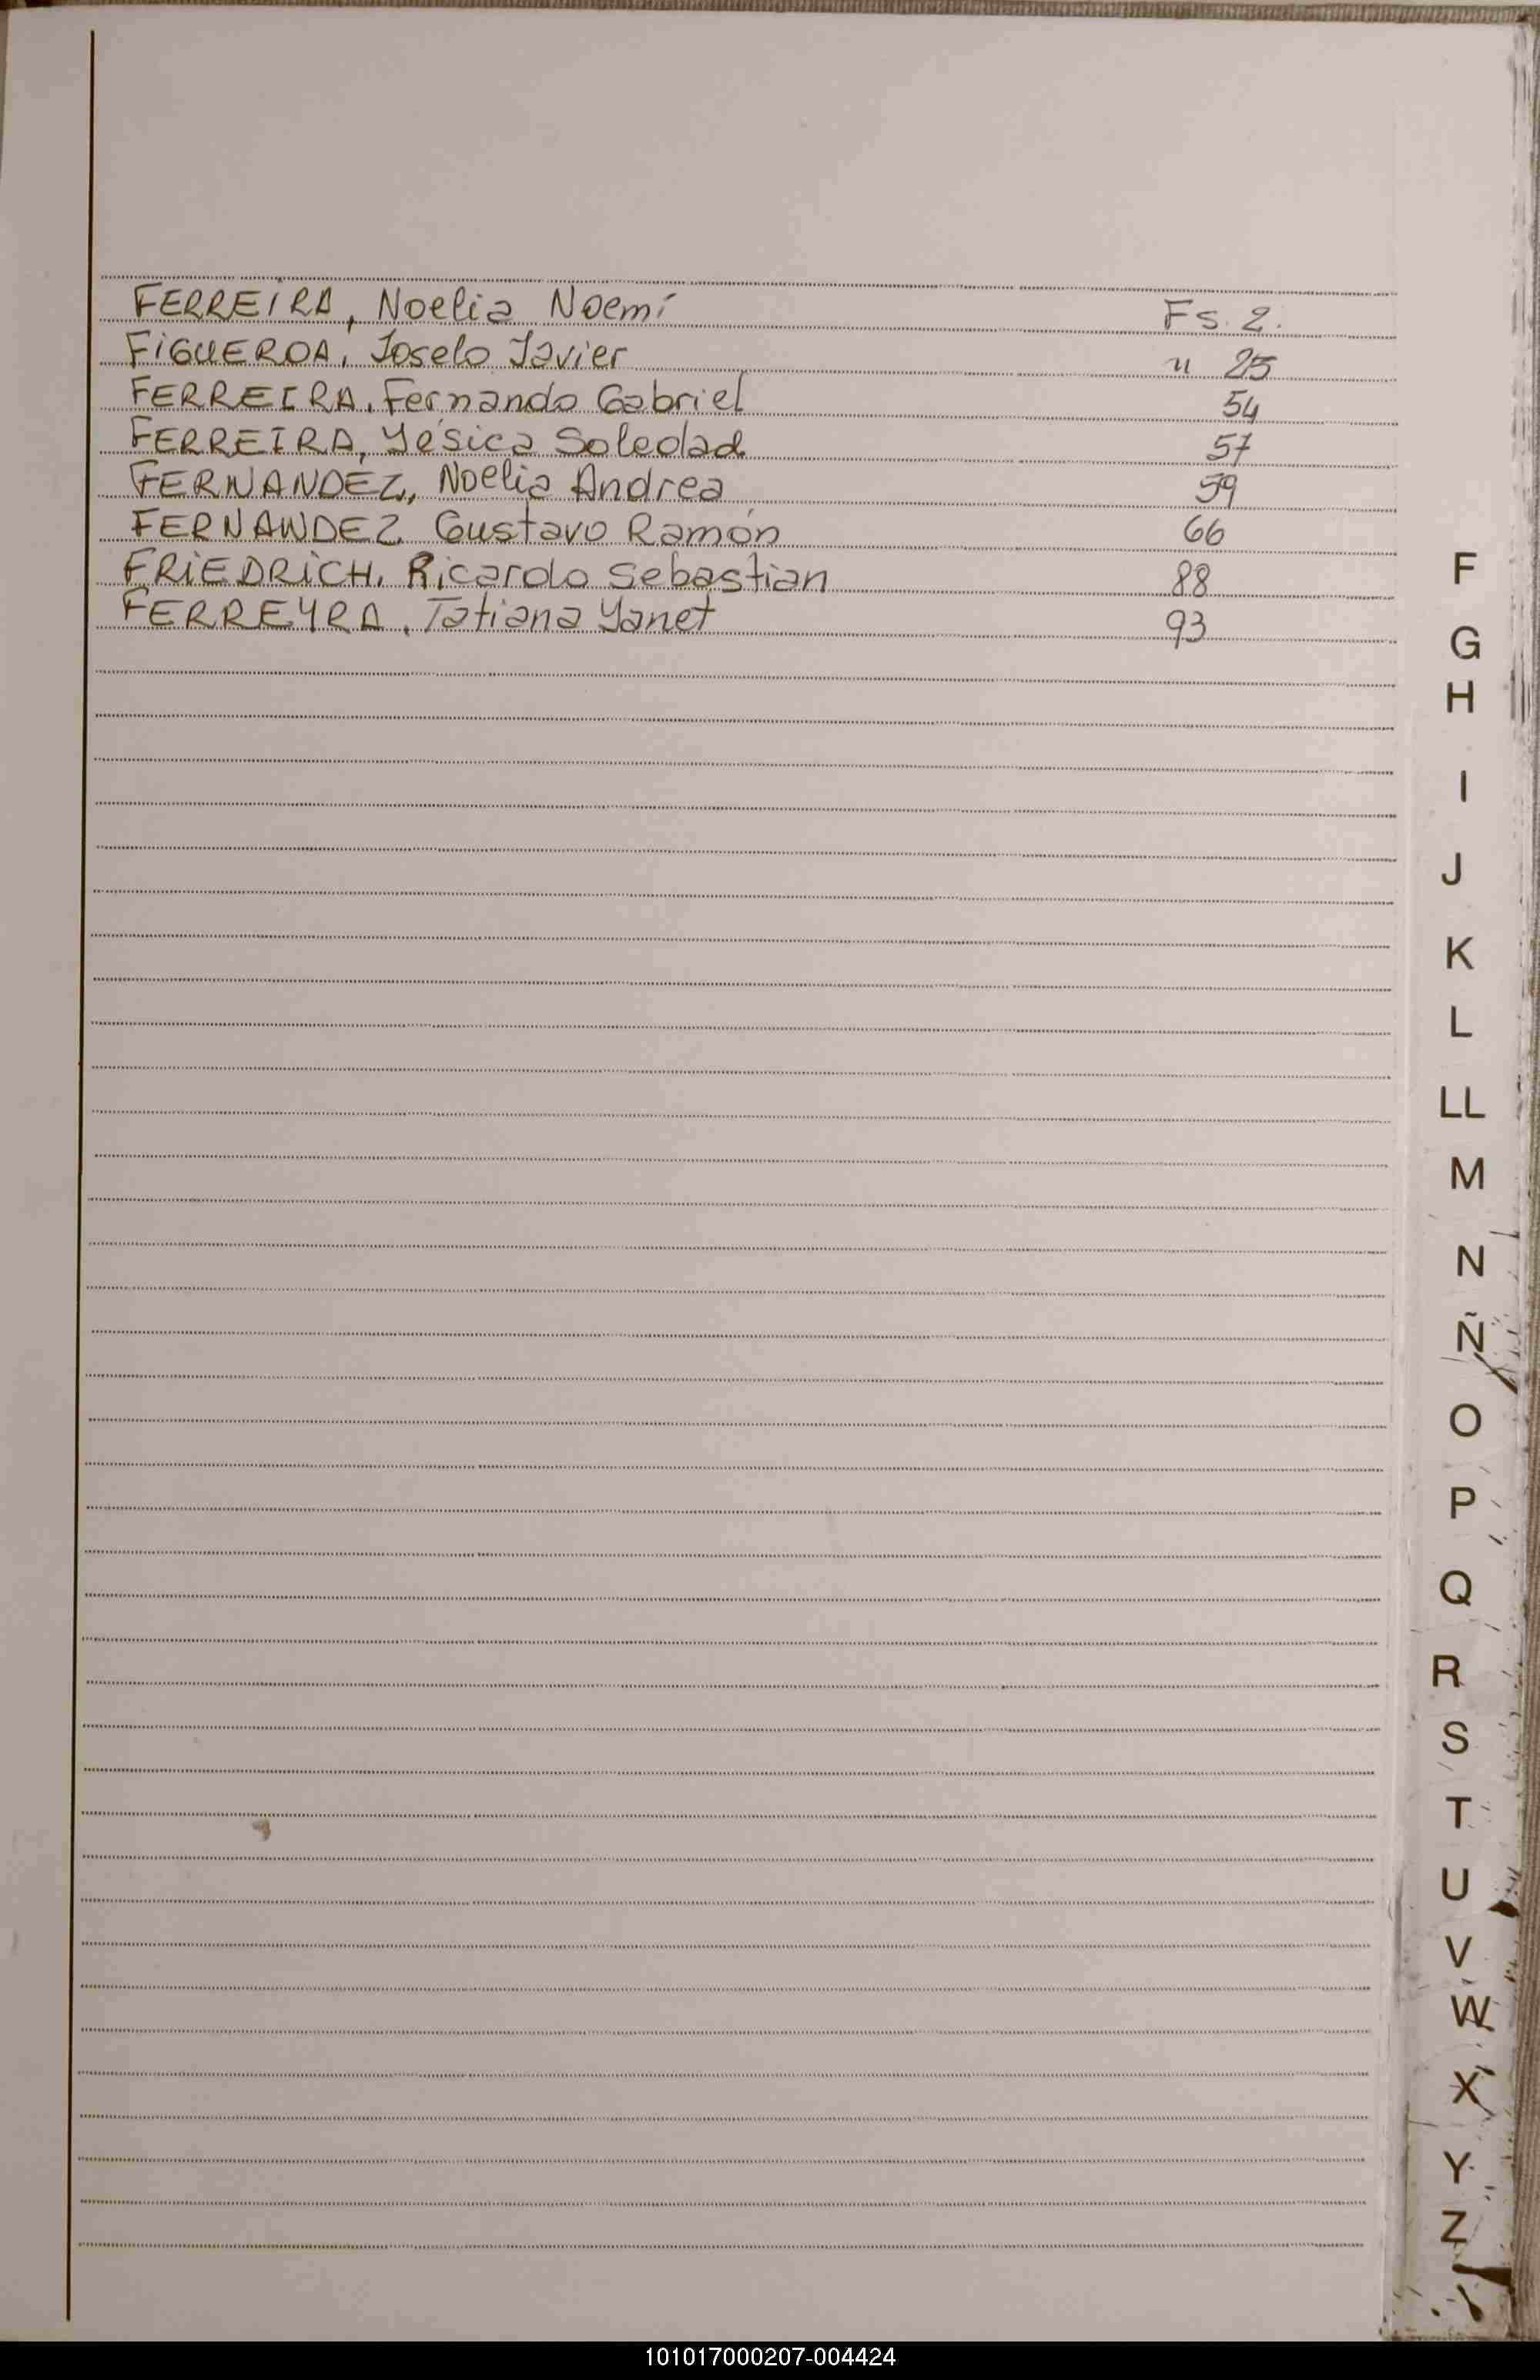 FERREIRA, Noelia Noemí Fs. 2.
FiGUEROA, Joselo Javier " 25
FERREIRA, Fernando Gabriel 54
FERREIRA, Yésica Soledad 57
FERNANDEZ, Noelia Andrea 59
FERNANDEZ, Gustavo Ramón 66
FRiEDRiCH, Ricardo Sebastian 88
FERREYRA, Tatiana Yanet 93
F
G
H
I
J
K
L
LL
M
N
Ñ
O
P
Q
R
S
T
U
V
W
X
Y
Z
101017000207-004424